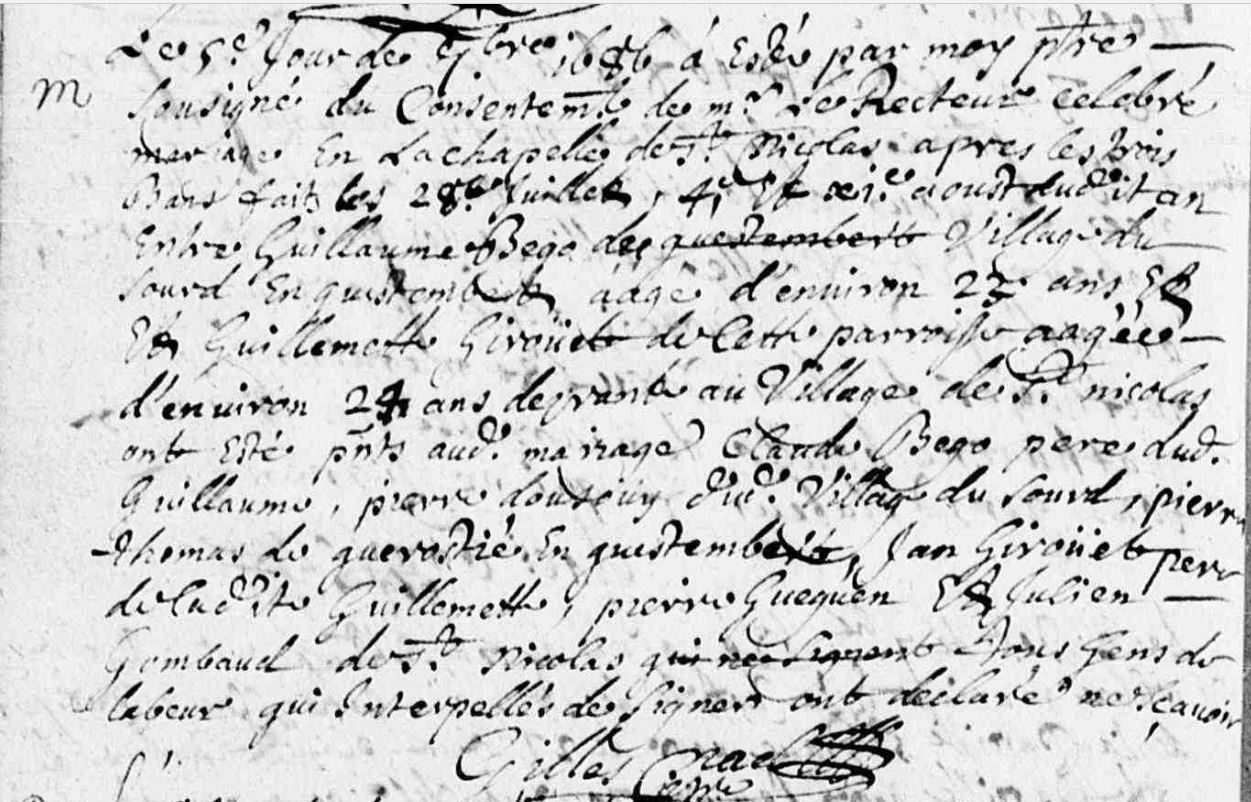 Le 5e Jour de 7bre 1686 á Esté par moy ptre
m
sousigné du Consentemt de mr Le Recteur celebré
mariage En La chapelle de St Nicolas apres les trois
Bans fait les 28e Juillet, 4e Et xie aoust dudit an
Entre Guillaume Bego de questembert Village du
sourd En questembert aagé d'environ 27 ans Et
Et Guillemette Giroüet de Cette parroisse aagée
d'environ 24 ans au Village de St nicolas
ont Esté pnts aud. mariage Claude Bego pere dud.
Guillaume, pierre dud. Village du sourd, pierre
Thomas de En questembert, Jan Giroüet pere
de ladite Guillemette, pierre Gueguen Et Julien
Gombaud de St Nicolas qui ne signent tous Gens de
labeur qui Interpellés de signer ont declaré ne scavoir
Gilles